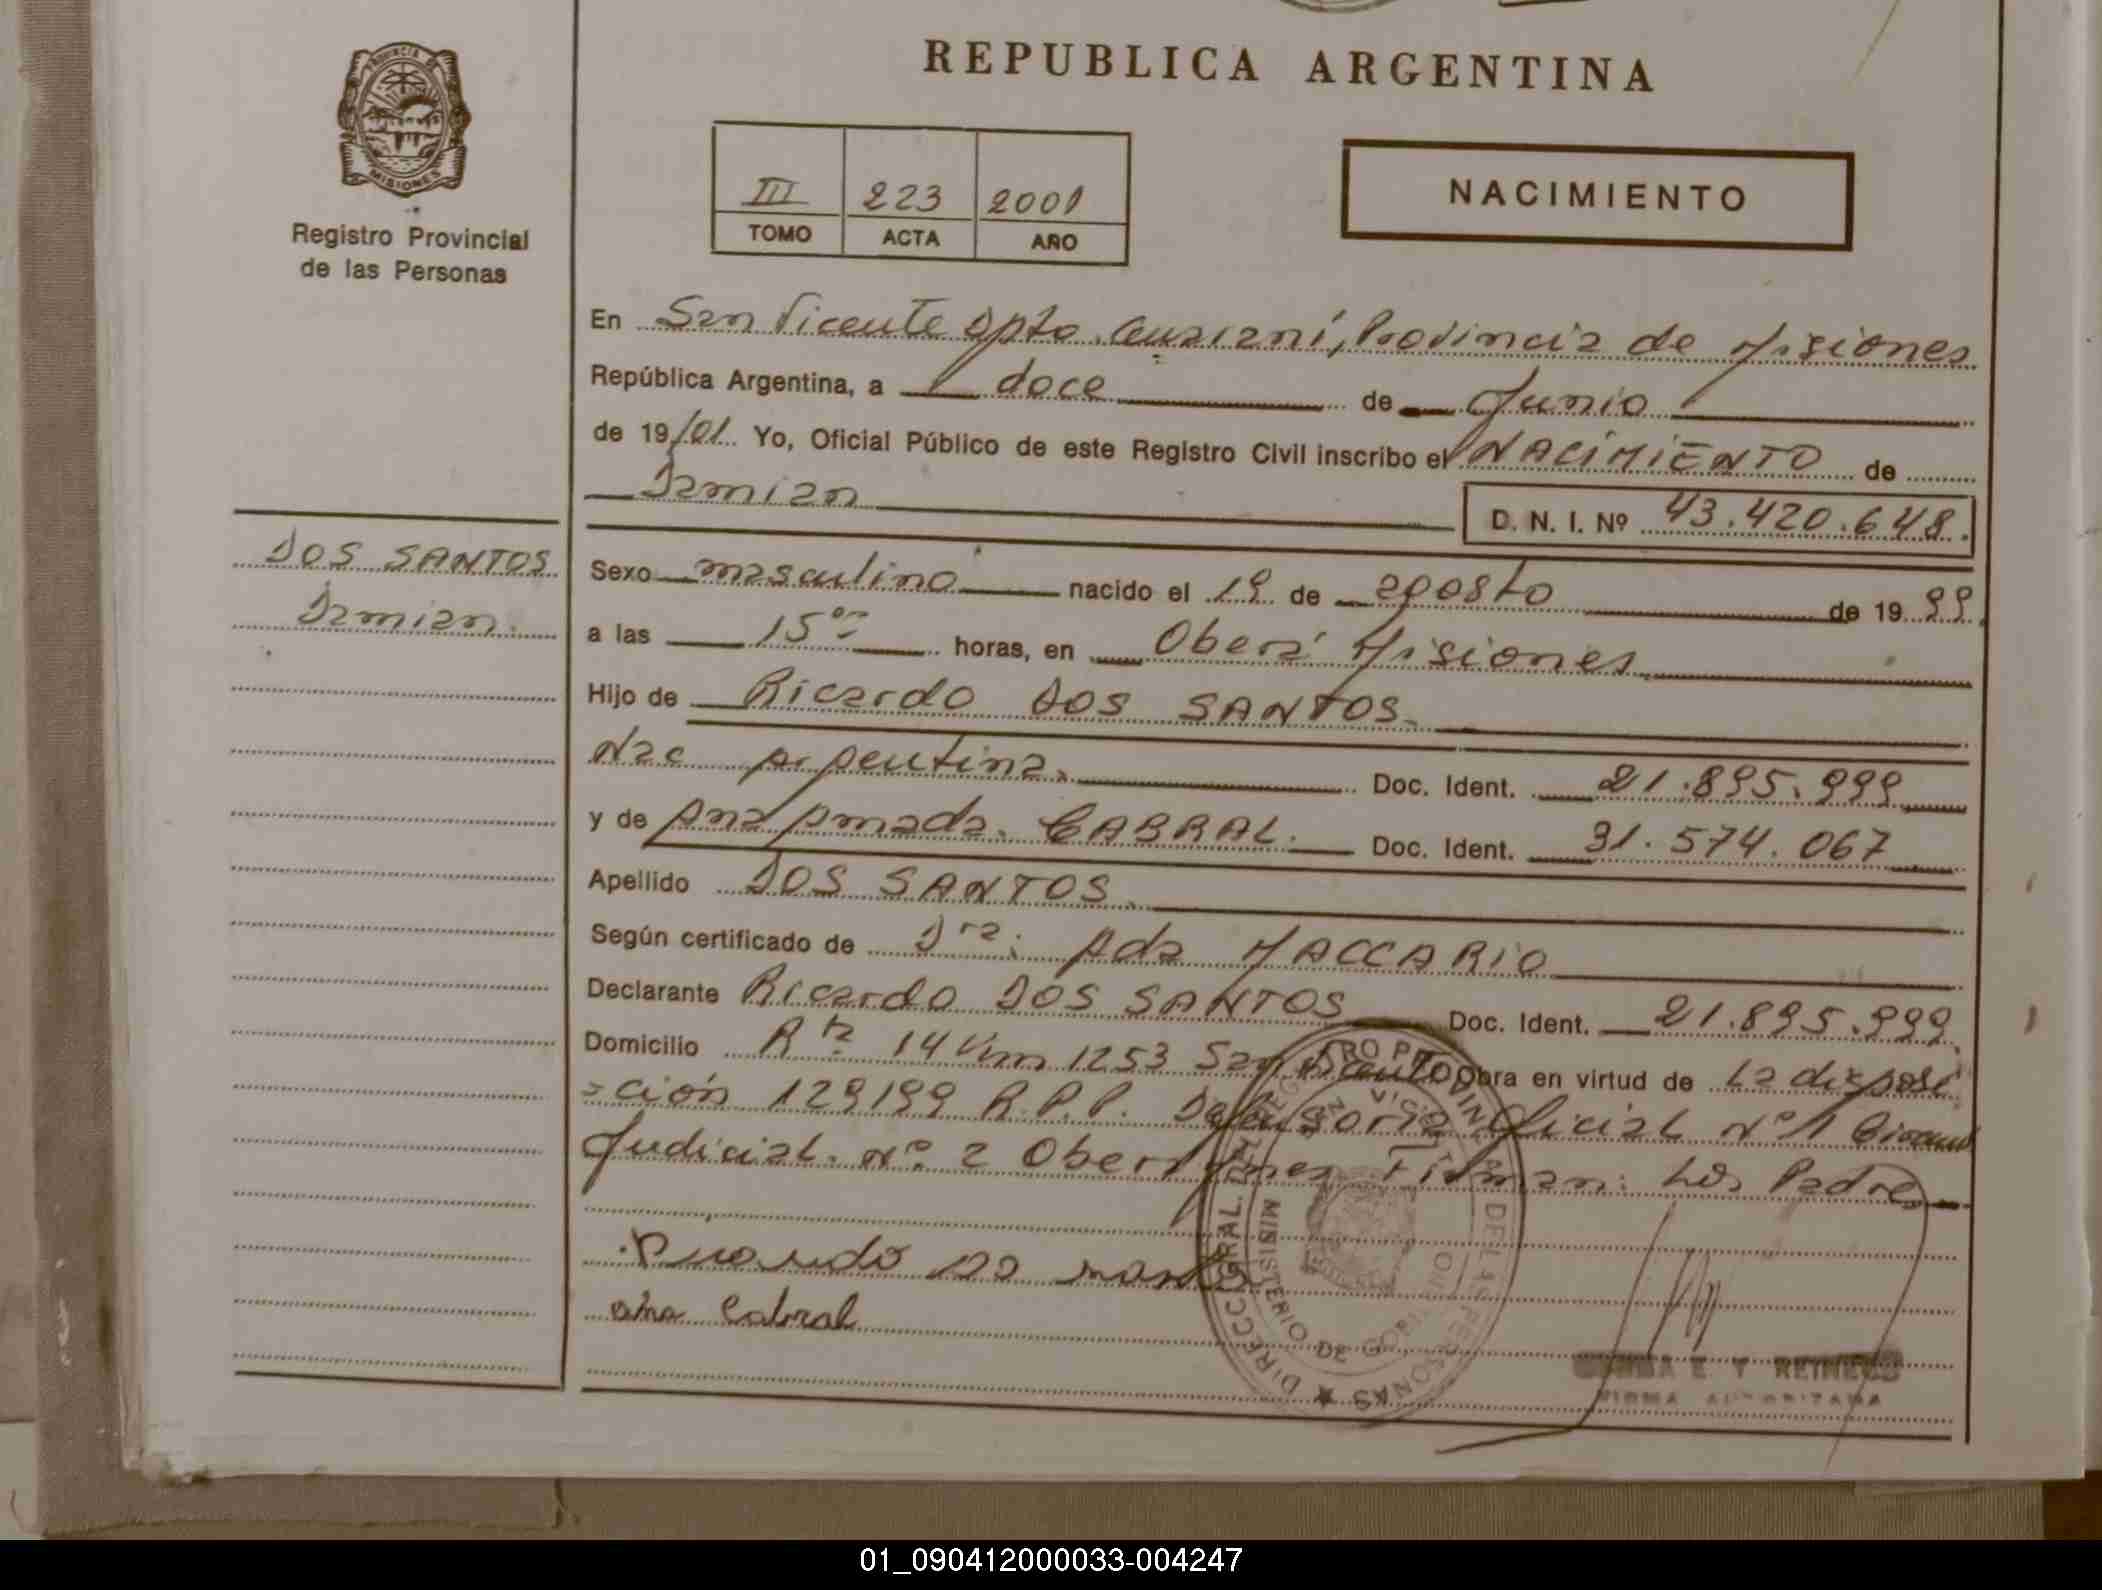 REPUBLICA ARGENTINA
PROVINCIA DE
MISIONES
Registro Provincial
de las Personas
III 223 2001
TOMO ACTA AÑO
NACIMIENTO
En San Vicente Dpto. Guaraní, Provincia de Misiones
República Argentina, a doce de Junio
de 19/01 Yo, Oficial Público de este Registro Civil inscribo el NACIMIENTO de
Damian D. N. I. Nº 43.420.648.
DOS SANTOS
Damian.
Sexo masculino nacido el 19 de agosto de 19 99
a las 15 horas, en Oberá Misiones
Hijo de Ricardo DOS SANTOS.
Nac Argentina. Doc. Ident. 21.895.999
y de Ana Amada. CABRAL. Doc. Ident. 31.574.067
Apellido DOS SANTOS.
Según certificado de Dra. Ada MACCARIO
Declarante Ricardo DOS SANTOS Doc. Ident. 21.895.999
Domicilio Rta 14 Km 1253 San Vicente Obra en virtud de La disposi
=ción 129199 R.P.P. Defensoria Oficial Nº 1
Judicial. Nº 2 Firman: Los Padres
Ricardo Do
ana Cabral
DIRECC. GRAL. DEL REGISTRO PROVINC. DE LAS PERSONAS
MINISTERIO DE GOBI
E Y REINECK
FIRMA AUTORIZADA
01_090412000033-004247